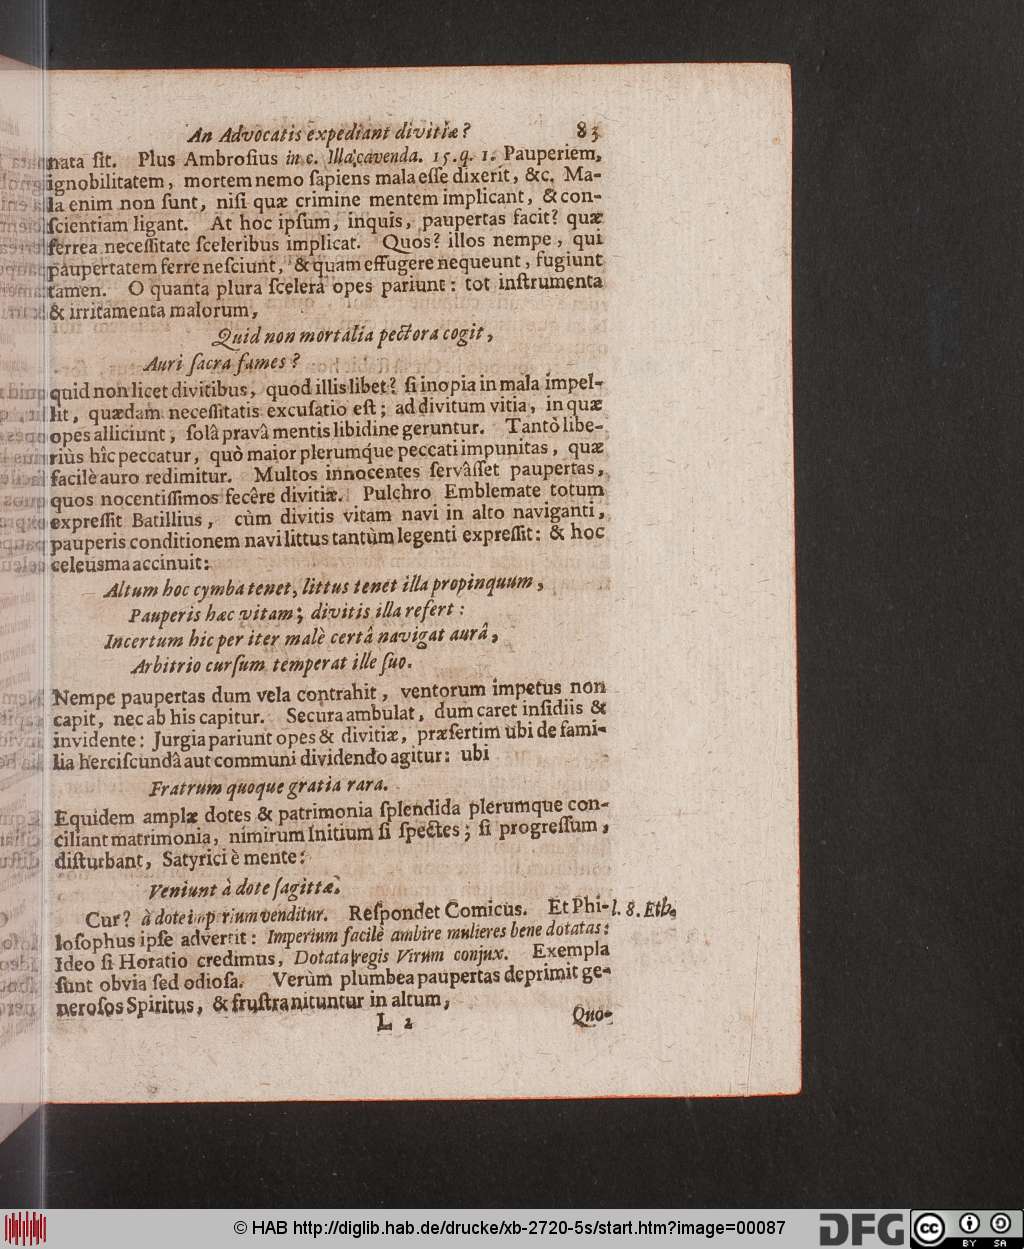 An Advocatis expediant divitiæ? 83
nata ſit. Plus Ambroſius in c. Illa cavenda. 15. q. 1. Pauperiem,
ignobilitatem, mortem nemo ſapiens mala eſſe dixerit, &c. Ma-
la enim non ſunt, niſi quæ crimine mentem implicant, & con-
ſcientiam ligant. At hoc ipſum, inquis, paupertas facit? quæ
ferrea neceſſitate ſceleribus implicat. Quos? illos nempe, qui
paupertatem ferre neſciunt, & quam effugere nequeunt, fugiunt
tamen. O quanta plura ſcelera opes pariunt: tot inſtrumenta
& irritamenta malorum,
Quid non mortalia pectora cogit,
Auri ſacra fames?
quid non licet divitibus, quod illis libet? ſi inopia in mala impel-
lit, quædam neceſſitatis excuſatio eſt; ad divitum vitia, in quæ
opes alliciunt, ſolâ pravâ mentis libidine geruntur. Tantò libe-
riùs hîc peccatur, quò maior plerumq́ue peccati impunitas, quæ
facilè auro redimitur. Multos innocentes ſervâſſet paupertas,
quos nocentiſſimos fecêre divitiæ. Pulchro Emblemate totum
expreſſit Batillius, cùm divitis vitam navi in alto naviganti,
pauperis conditionem navi littus tantùm legenti expreſſit: & hoc
celeusma accinuit:
Altum hoc cymba tenet, littus tenet illa propinquum,
Pauperis hæc vitam; divitis illa refert:
Incertum hic per iter malè certâ navigat aurâ,
Arbitrio curſum temperat ille ſuo.
Nempe paupertas dum vela contrahit, ventorum impetus non
capit, nec ab his capitur. Secura ambulat, dum caret inſidiis &
invidente: Jurgia pariunt opes & divitiæ, præſertim ubi de fami-
lia herciſcundâ aut communi dividendo agitur: ubi
Fratrum quoque gratia rara.
Equidem amplæ dotes & patrimonia ſplendida plerumque con-
ciliant matrimonia, nimirum Initium ſi ſpectes; ſi progreſſum,
diſturbant, Satyrici è mente:
Veniunt à dote ſagittæ.
Cur? à dote imperium venditur. Reſpondet Comicus. Et Phi- l. 8. Eth.
loſophus ipſe advertit: Imperium facilè ambire mulieres bene dotatas:
Ideo ſi Horatio credimus, Dotata regis Virum conjux. Exempla
ſunt obvia ſed odioſa. Verùm plumbea paupertas deprimit ge-
neroſos Spiritus, & fruſtra nituntur in altum,
L 2 Quo-
© HAB http://diglib.hab.de/drucke/xb-2720-5s/start.htm?image=00087
DFG
cc BY SA